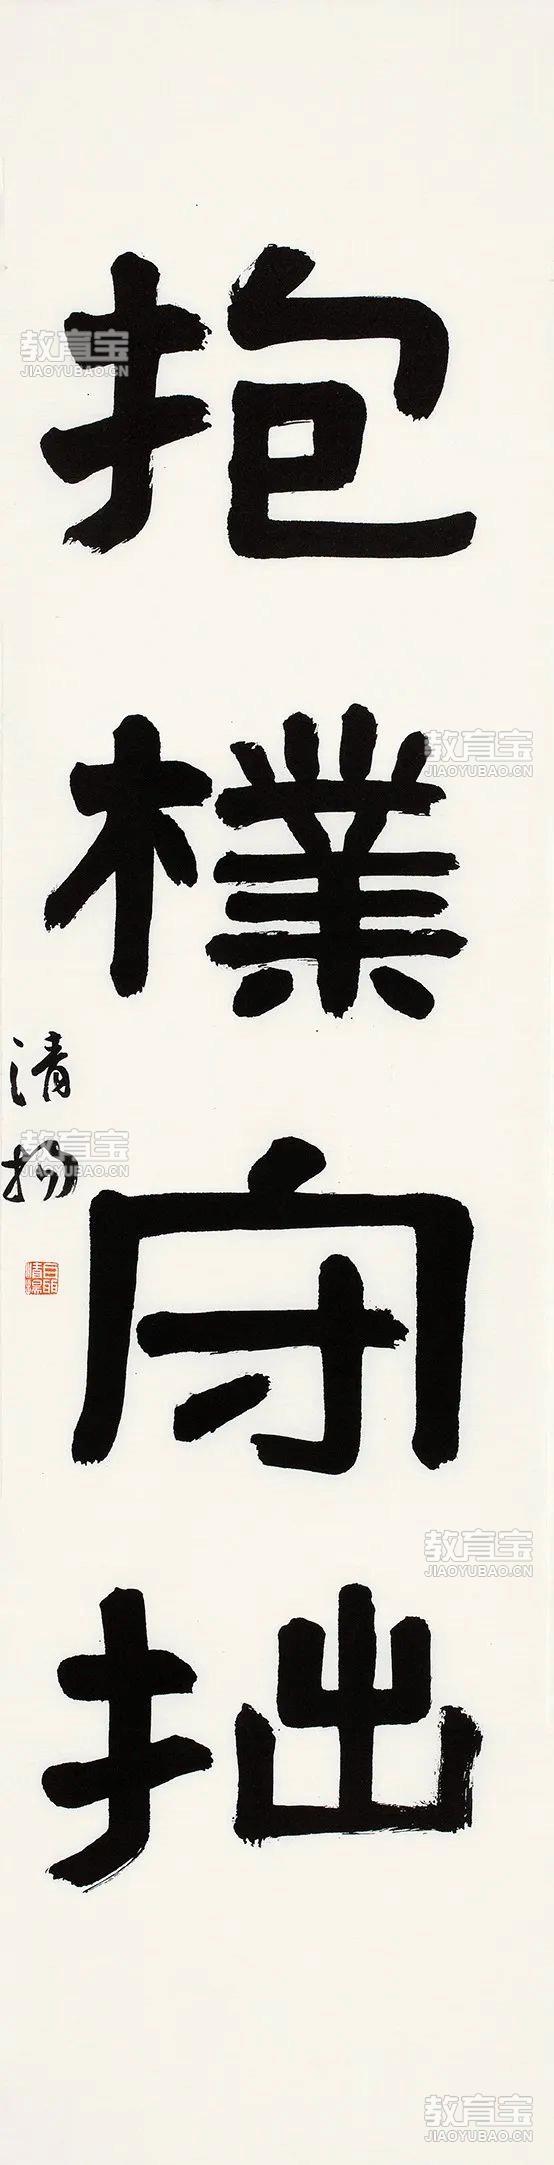 抱樸守拙
清揚
教育宝
JIAOYUBAO.CN
教育宝
JIAOYUBAO.CN
教育宝
JIAOYUBAO.CN
教育宝
JIAOYUBAO.CN
教育宝
JIAOYUBAO.CN